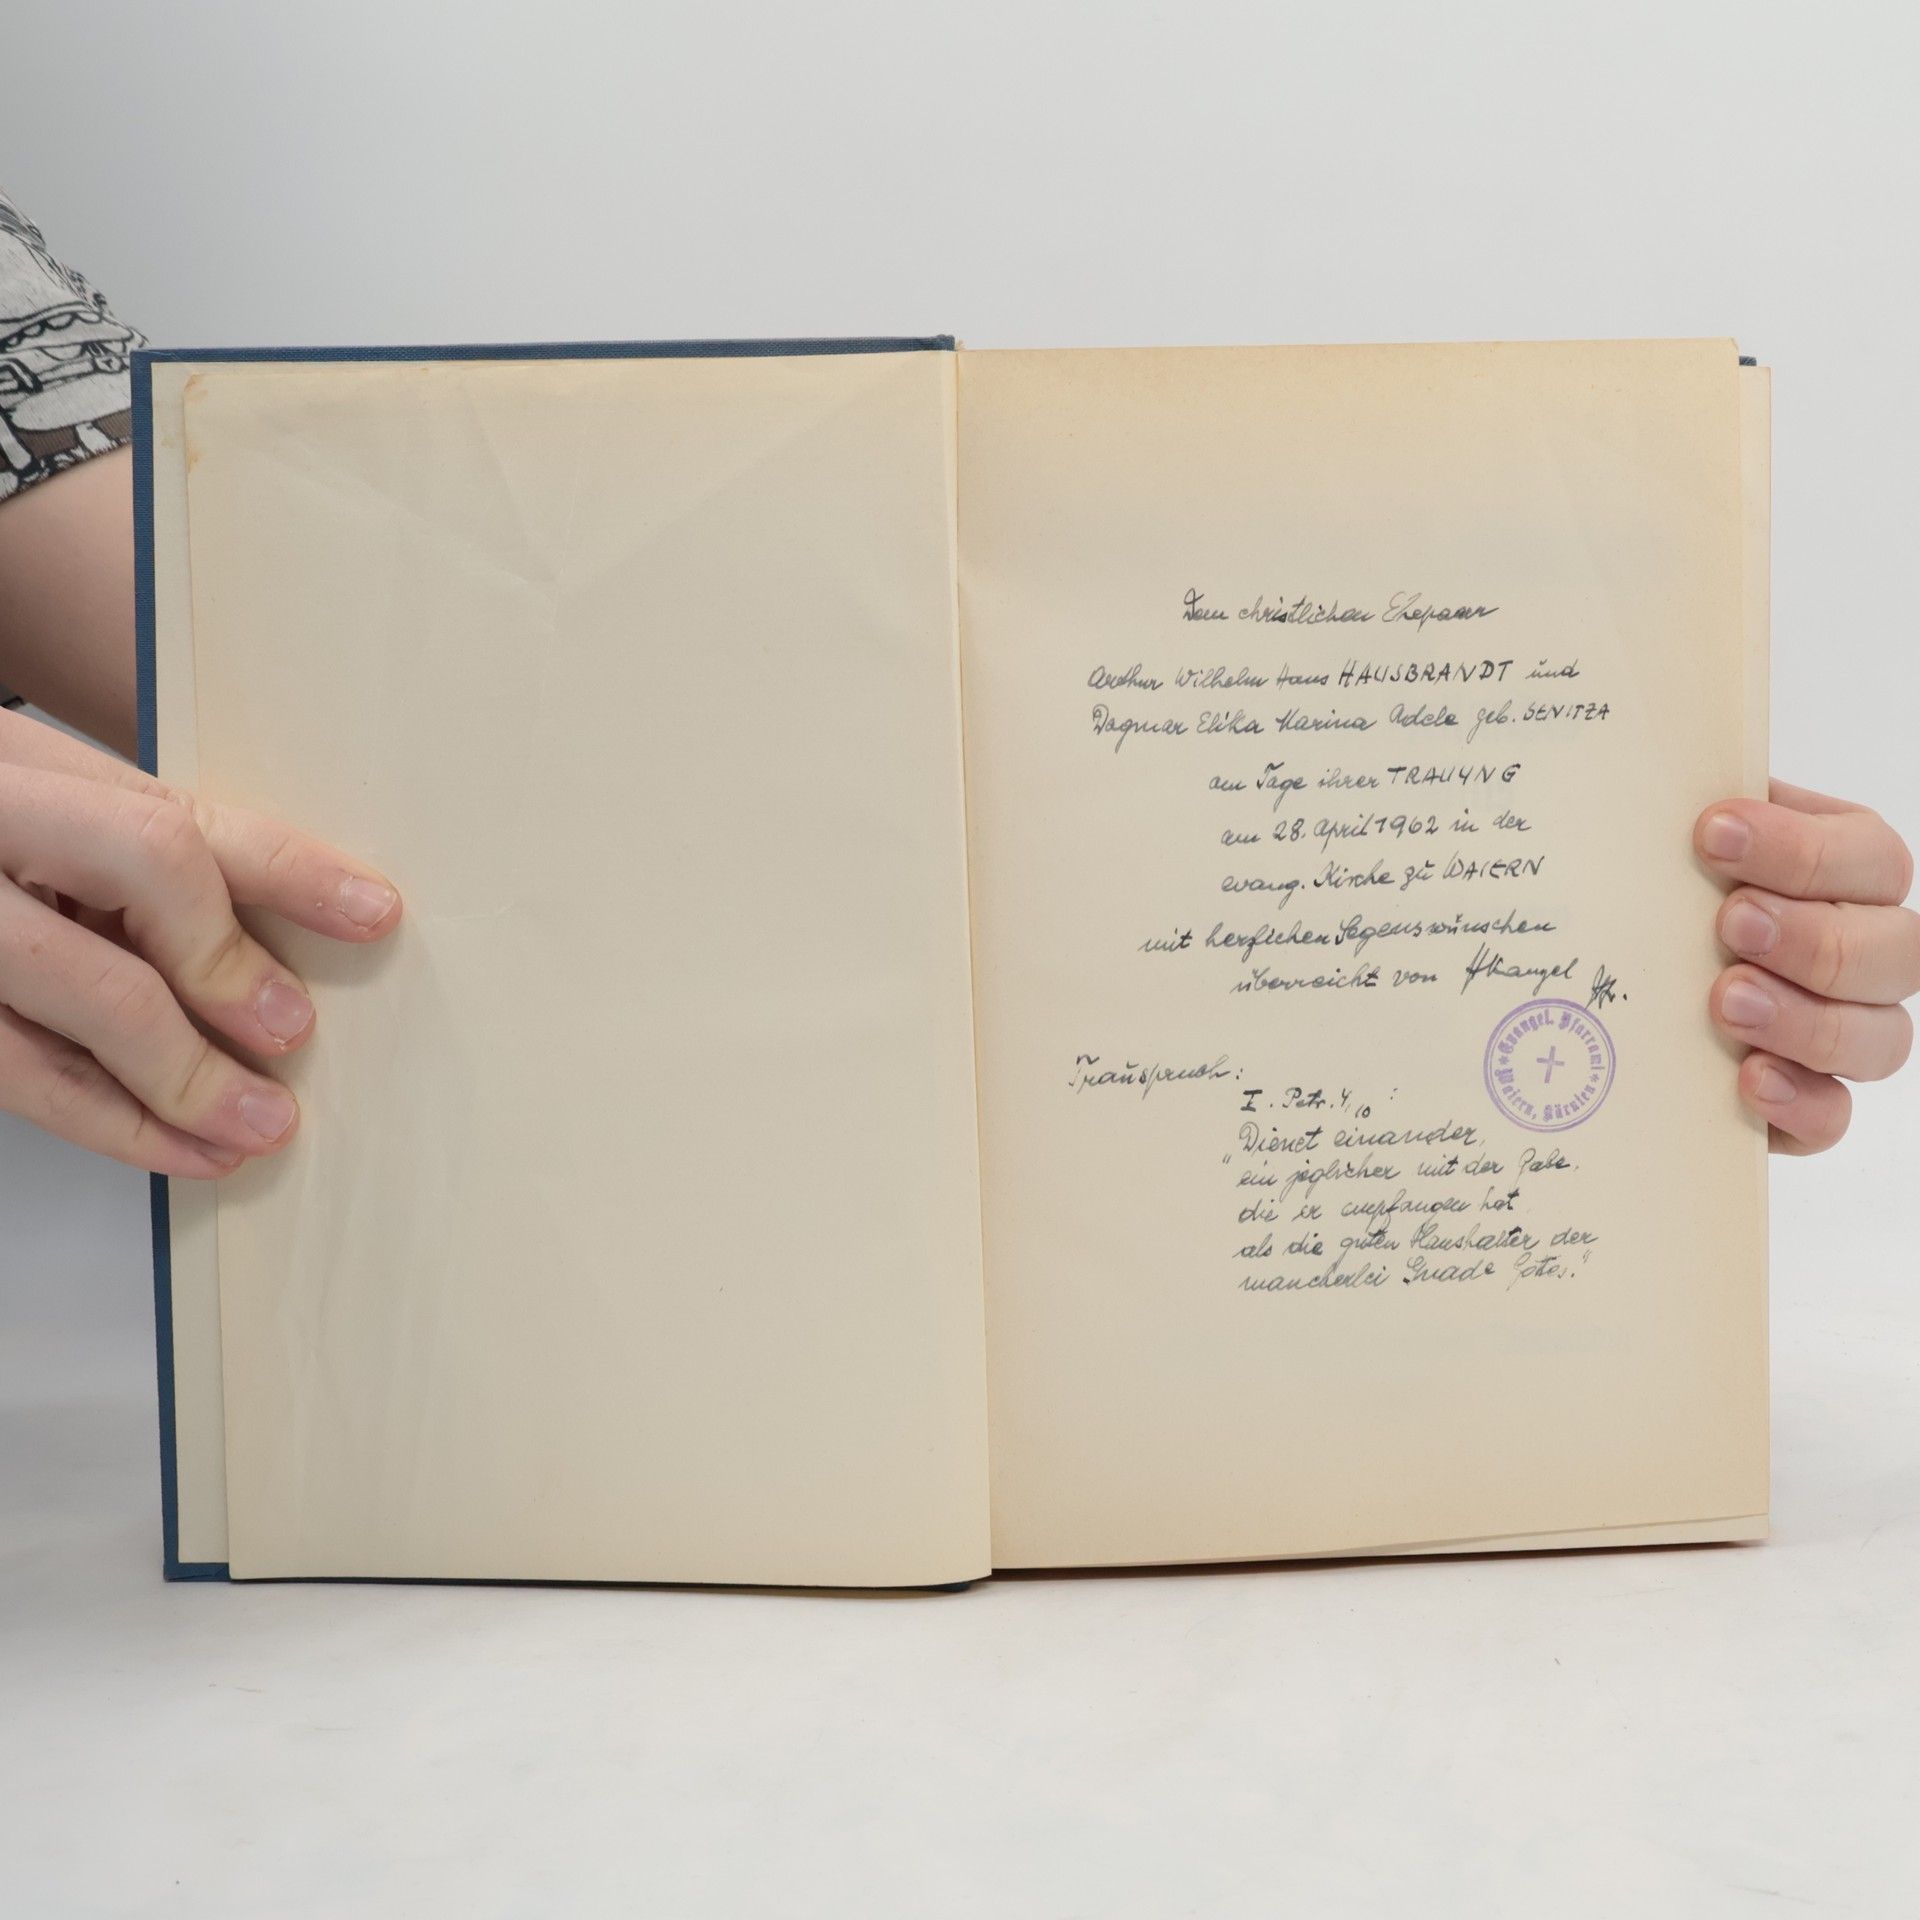 Dem christlichen Ehepaar
Arthur Wilhelm Hans HAUSBRANDT und
Dagmar Elika Marina Adele geb. SENITZA
am Tage ihrer TRAUUNG
am 28. April 1962 in der
evang. Kirche zu WAIERN
mit herzlichen Segenswünschen
überreicht von
Evangel. Pfarramt
Waiern, Kärnten
Trauspruch:
I. Petr. 4, 10 :
"Dienet einander,
ein jeglicher mit der Gabe,
die er empfangen hat
als die guten Haushalter der
mancherlei Gnade Gottes."